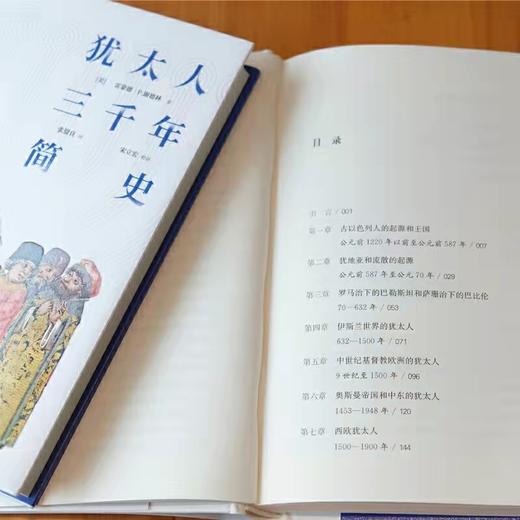 犹太人
三千年
简史
[美] 雷蒙德·P.谢德林 著
张鋆良 译
宋立宏 校译
目录
引言 / 001
第一章 古以色列人的起源和王国
公元前 1220 年以前至公元前 587 年 / 007
第二章 犹地亚和流散的起源
公元前 587 年至公元 70 年 / 029
第三章 罗马治下的巴勒斯坦和萨珊治下的巴比伦
70－632 年 / 053
第四章 伊斯兰世界的犹太人
632－1500 年 / 071
第五章 中世纪基督教欧洲的犹太人
9 世纪至 1500 年 / 096
第六章 奥斯曼帝国和中东的犹太人
1453－1948 年 / 120
第七章 西欧犹太人
1500－1900 年 / 144